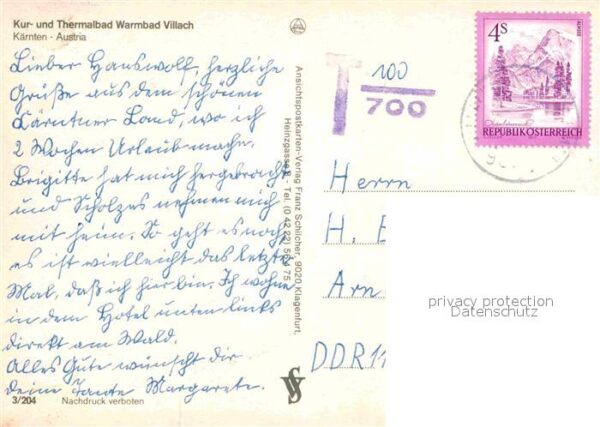 Kur- und Thermalbad Warmbad Villach
Kärnten - Austria
Lieber Hanswolf, herzliche
Grüße aus dem schönen
Kärntner Land, wo ich
2 Wochen Urlaub mache.
Brigitte hat mich hergebracht
und Scholzes nehmen mich
mit heim. So geht es noch,
es ist vielleicht das letzte
Mal, daß ich hier bin. Ich wohne
in dem Hotel unten links
direkt am Wald.
Alles Gute wünscht dir
deine Tante Margarete.
3/204 Nachdruck verboten
Ansichtspostkarten-Verlag Franz Schilcher, 9020 Klagenfurt,
Heinzgasse - Tel. (0 42 22) 75
T 100
700
4S
ALMSEE
REPUBLIK ÖSTERREICH
Herrn
H. E
Arn
DDR 11
privacy protection
Datenschutz